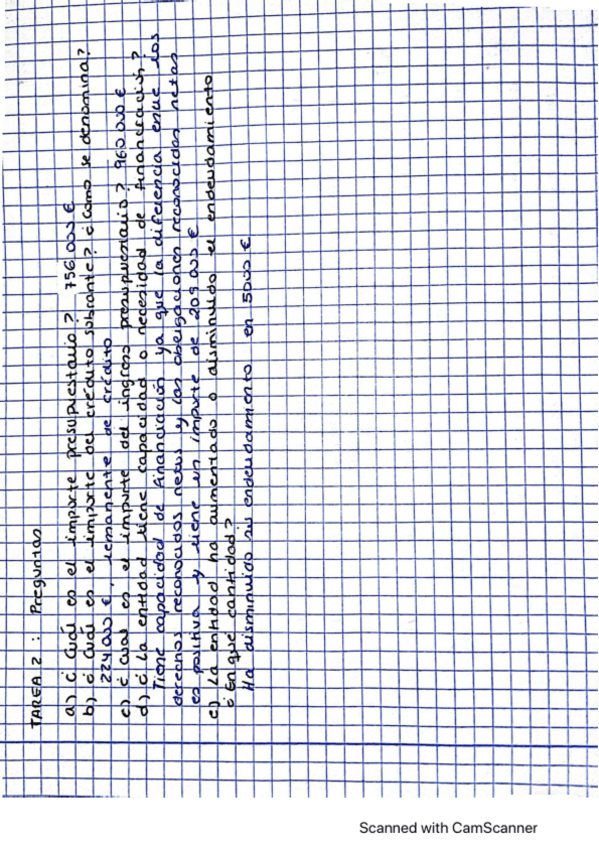 TAREA 2 : Preguntas
a) ¿ Cuál es el importe presupuestario ? 756.000 €
b) ¿ Cuál es el importe del crédito sobrante ? ¿ Como se denomina ?
224.000 €, remanente de crédito
c) ¿ Cual es el importe del ingreso presupuestario ? 960.000 €
d) ¿ La entidad tiene capacidad o necesidad de financiación ?
Tiene capacidad de financiación ya que la diferencia entre los
derechos reconocidos netos y las obligaciones reconocidas netas
es positiva y tiene un importe de 209.000 €
e) La entidad ha aumentado o disminuido el endeudamiento
¿ En que cantidad ?
Ha disminuido su endeudamiento en 5000 €
Scanned with CamScanner